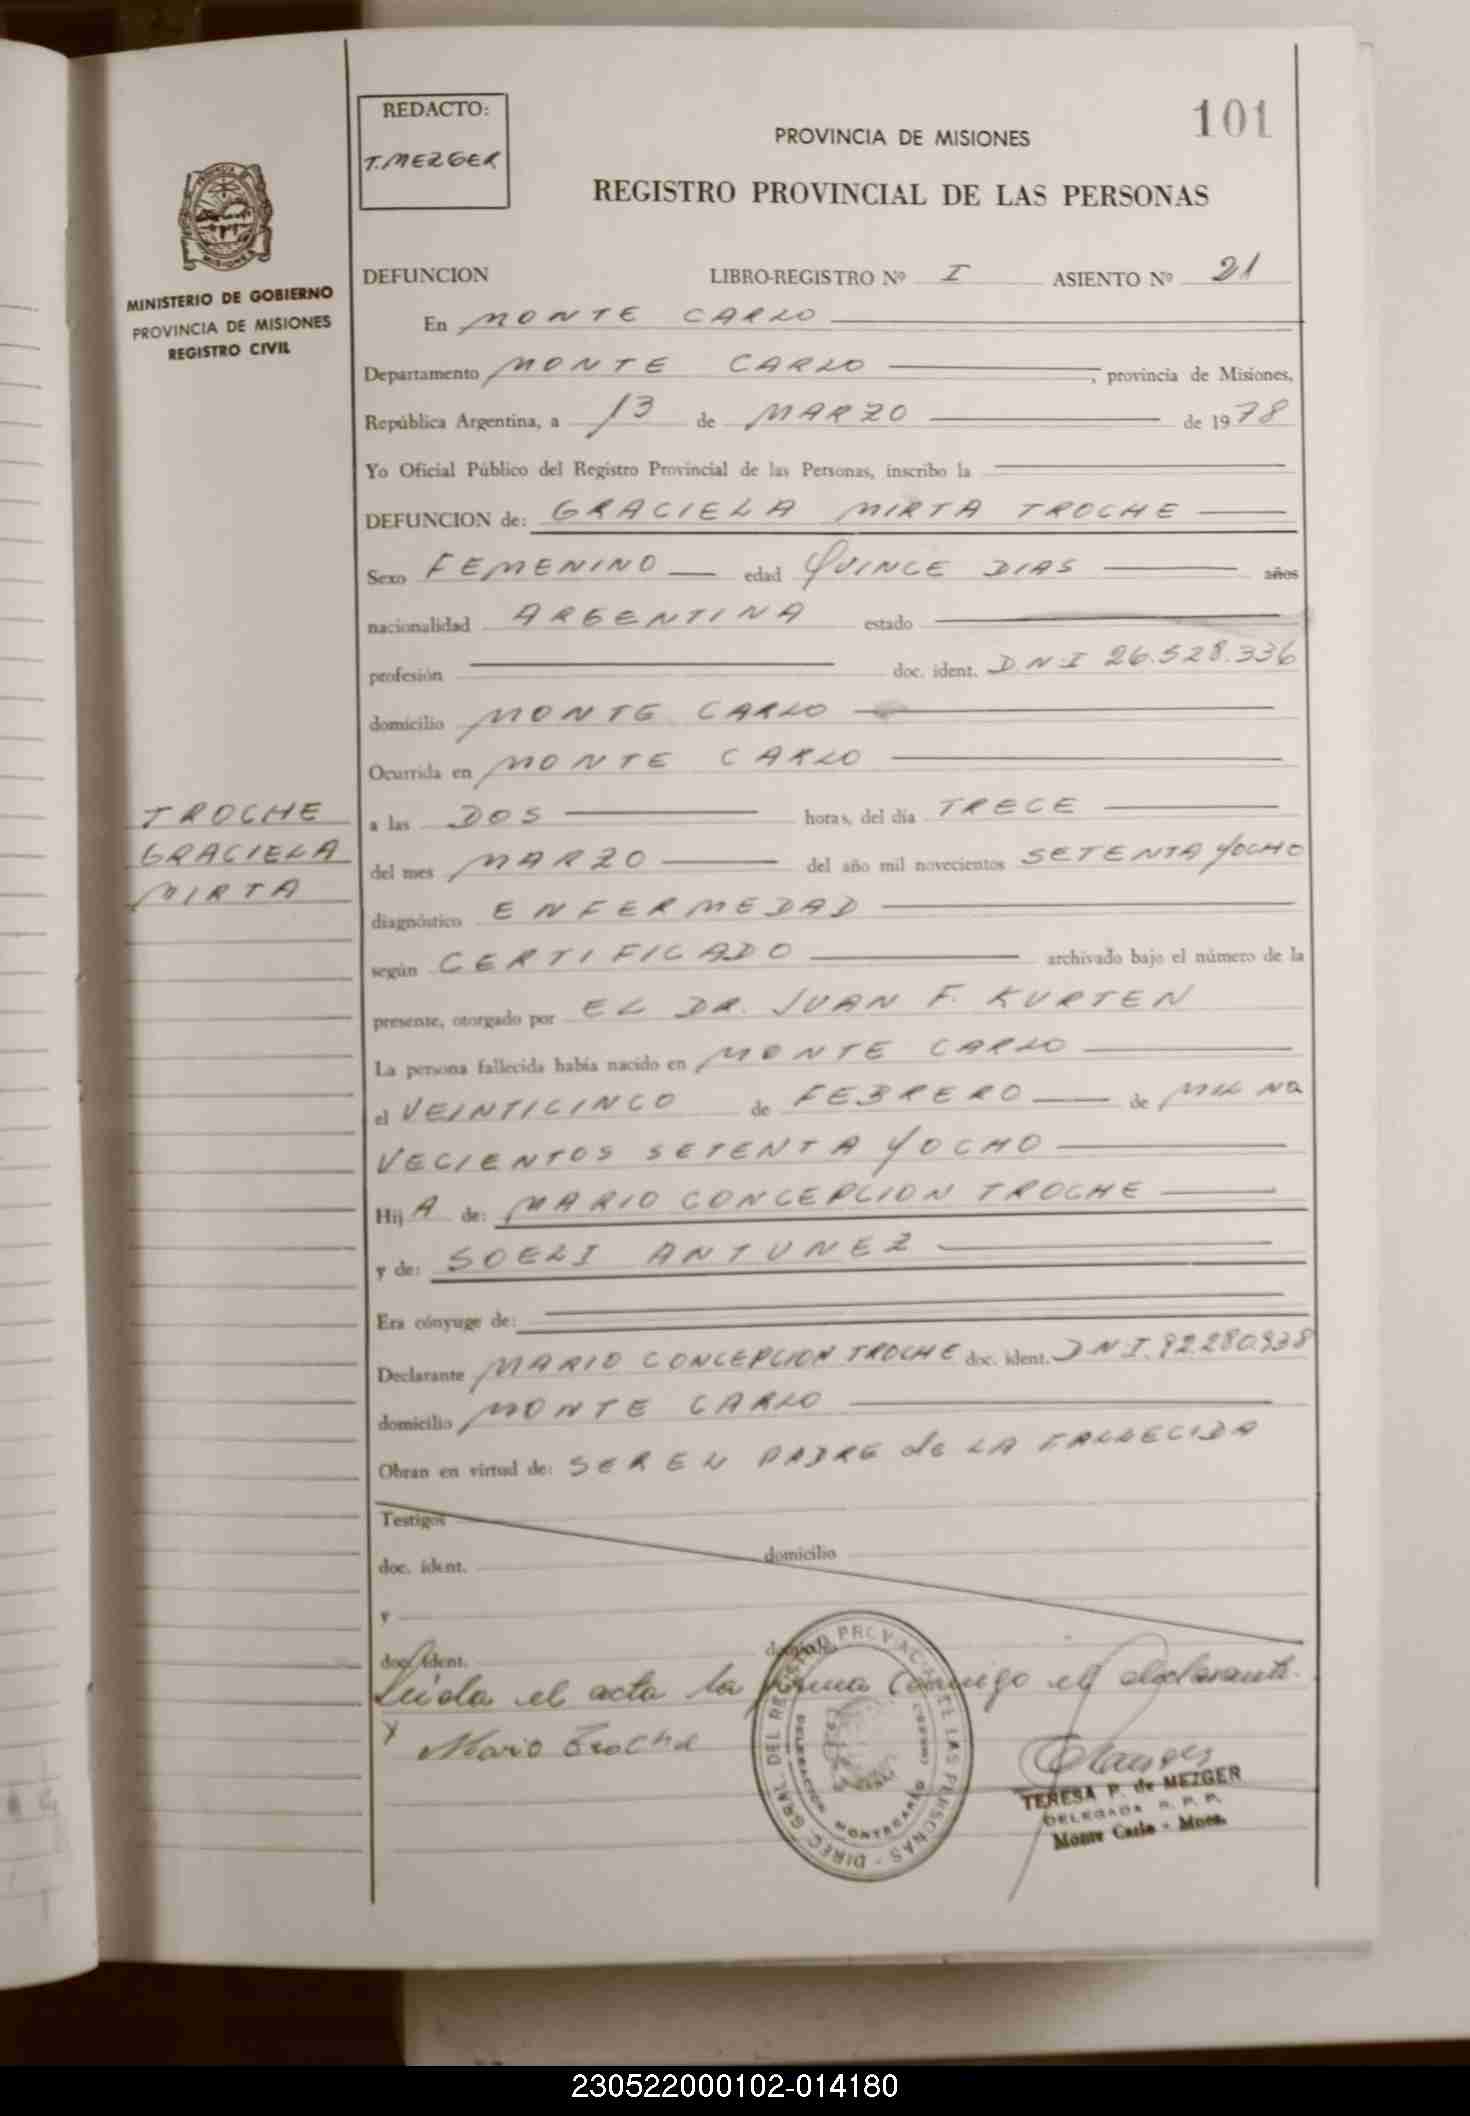 101
REDACTO:
T. MEZGER
PROVINCIA DE MISIONES
REGISTRO PROVINCIAL DE LAS PERSONAS
MINISTERIO DE GOBIERNO
PROVINCIA DE MISIONES
REGISTRO CIVIL
DEFUNCION LIBRO-REGISTRO Nº I ASIENTO Nº 21
En MONTE CARLO
Departamento MONTE CARLO, provincia de Misiones,
República Argentina, a 13 de MARZO de 1978
Yo Oficial Público del Registro Provincial de las Personas, inscribo la
DEFUNCION de: GRACIELA MIRTA TROCHE
Sexo FEMENINO edad QUINCE DIAS años
nacionalidad ARGENTINA estado
profesión doc. ident. D.N.I 26.528.336
domicilio MONTE CARLO
Ocurrida en MONTE CARLO
TROCHE
GRACIELA
MIRTA
a las DOS horas, del día TRECE
del mes MARZO del año mil novecientos SETENTA Y OCHO
diagnóstico ENFERMEDAD
según CERTIFICADO archivado bajo el número de la
presente, otorgado por EL DR. JUAN F. KURTEN
La persona fallecida había nacido en MONTE CARLO
el VEINTICINCO de FEBRERO de MIL NO
VECIENTOS SETENTA Y OCHO
Hij A de: MARIO CONCEPCION TROCHE
y de: SOELI ANTUNEZ
Era cónyuge de:
Declarante MARIO CONCEPCION TROCHE doc. ident. D.N.I. 92.280.938
domicilio MONTE CARLO
Obran en virtud de: SER EL PADRE de LA FALLECIDA
Testigos
doc. ident. domicilio
y
doc. ident. domicilio
Leida el acta la firma conmigo el declarante.
X Mario Troche
DIREC. GRAL. DEL REGISTRO PROVINCIAL DE LAS PERSONAS
DELEGACION MONTECARLO
TERESA P. de MEZGER
DELEGADA R. P. P.
Monte Carlo - Mnes.
230522000102-014180